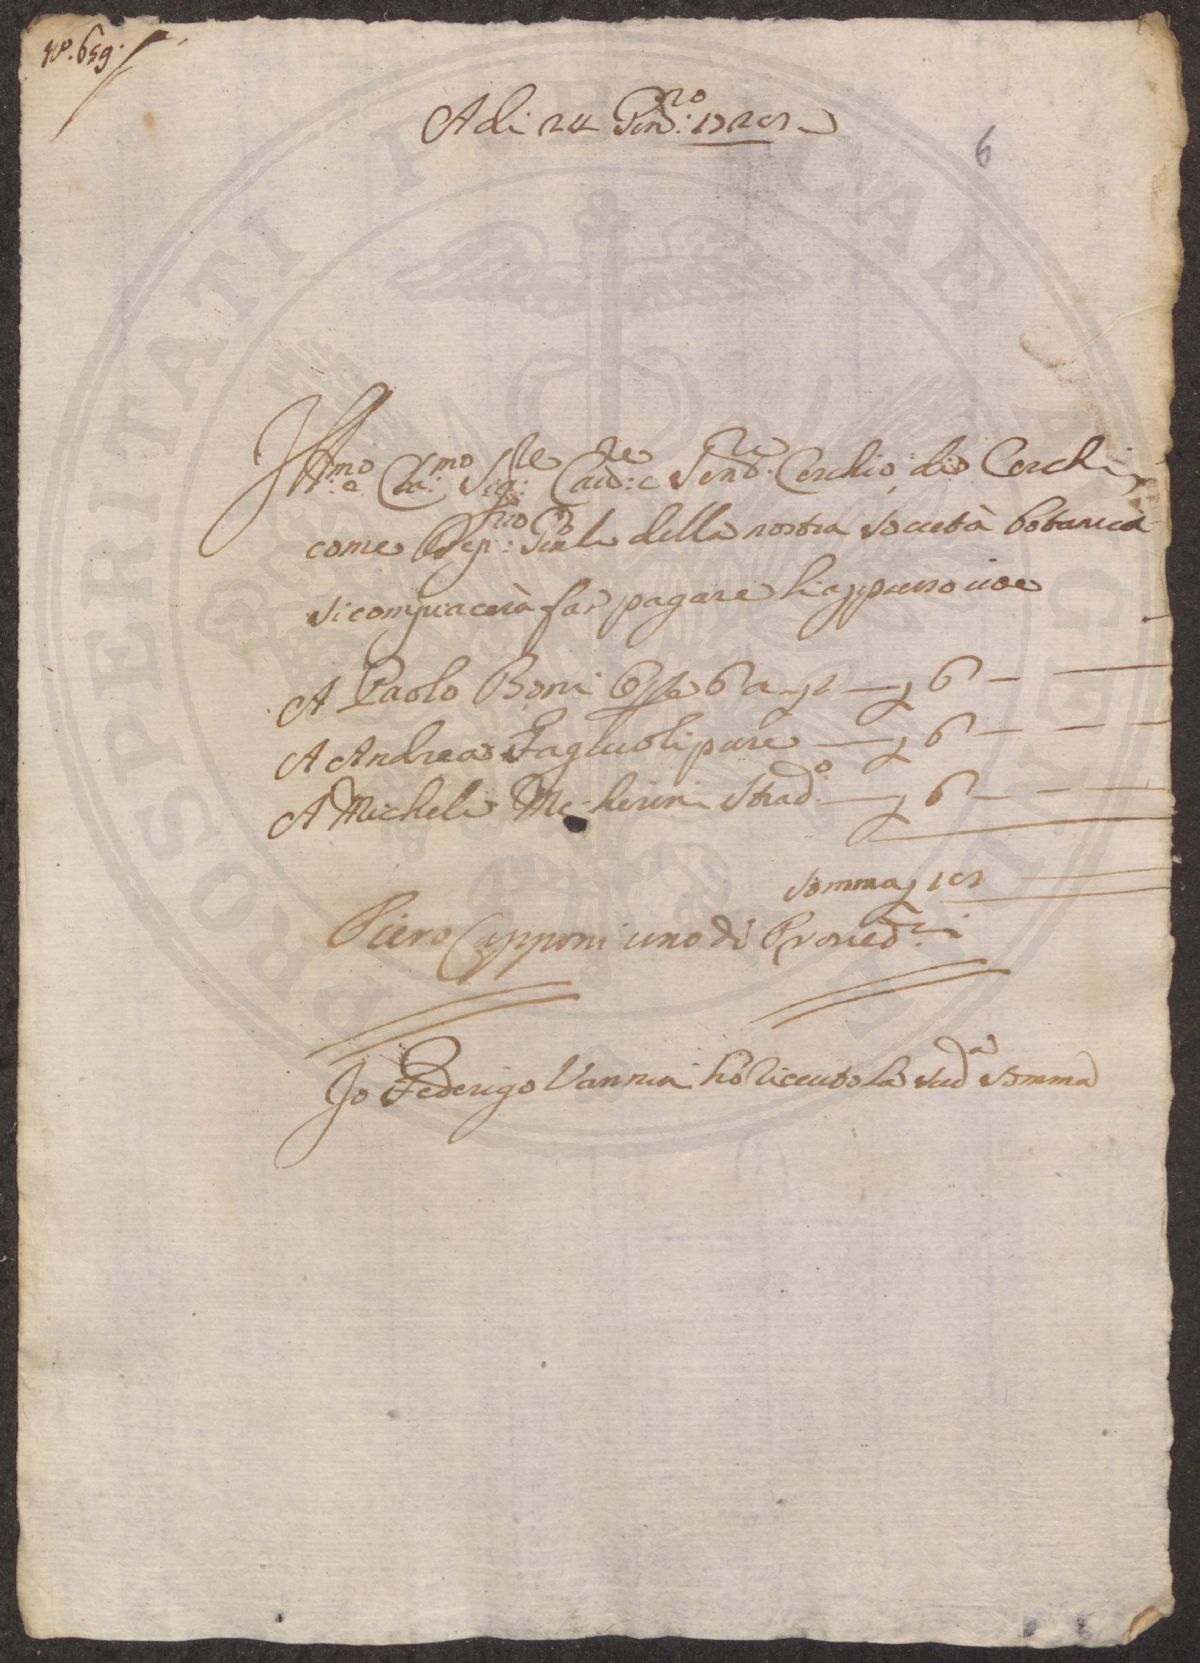 N°. 659.
Adi 24 Genn:ro 1728
6
Ill:mo e Cla:mo Sig:re Cav:re e Send:re Cerchio de Cerchi
come Seg:rio Gen:le della nostra Società botanica
si compiacerà far pagare li appresso cioe
A Paolo Boni Op:e 6 a — 6 —
A Andrea Fagiuoli pure — 6 —
A Michele Mecherini Strad:o — 6 —
Somma 18
Piero Capponi uno di Proved:ri
Io Federigo Vannini hò riceuto la sud:a Somma
PROSPERITATI PUBLICAE AUGENDAE